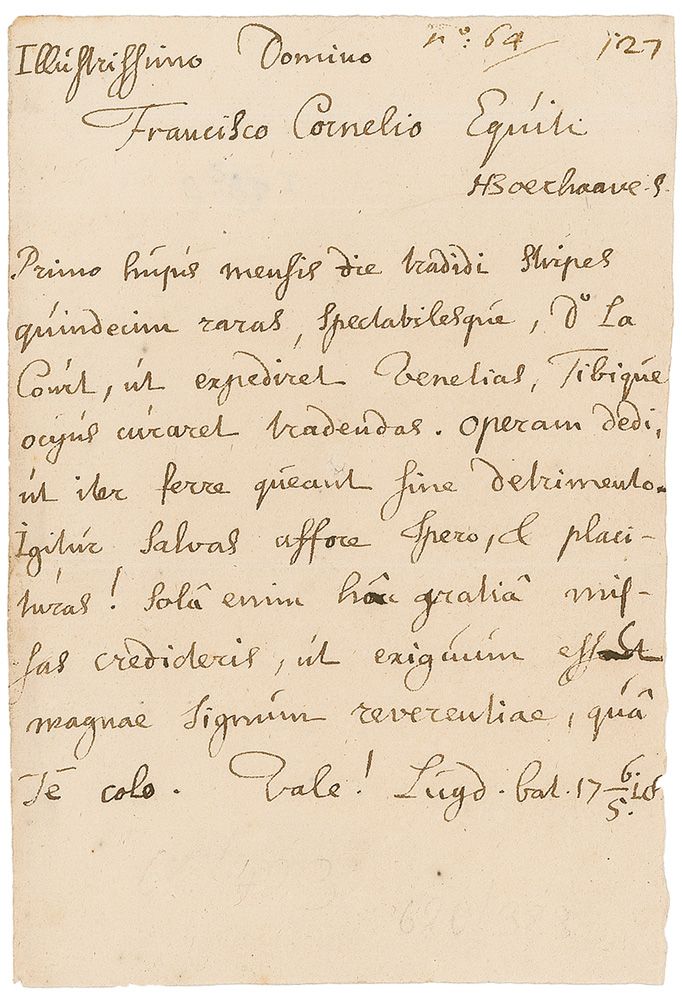 Illustrissimo Domino nº: 64 127
Francisco Cornelio Equiti
HBoerhaave. S.
Primo hujus mensis die tradidi stirpes
quindecim raras, spectabilesque, Dº La
Court, ut expediret Venetias, Tibique
ocyus curaret tradendas. operam dedi,
ut iter ferre queant sine detrimento.
Igitur salvas affore spero, & placi-
turas! solâ enim hâc gratiâ mis-
sas credideris, ut exiguum esset
magnae signum reverentiae, quâ
Te colo. Vale! Lugd. bat. 17 6/5 18